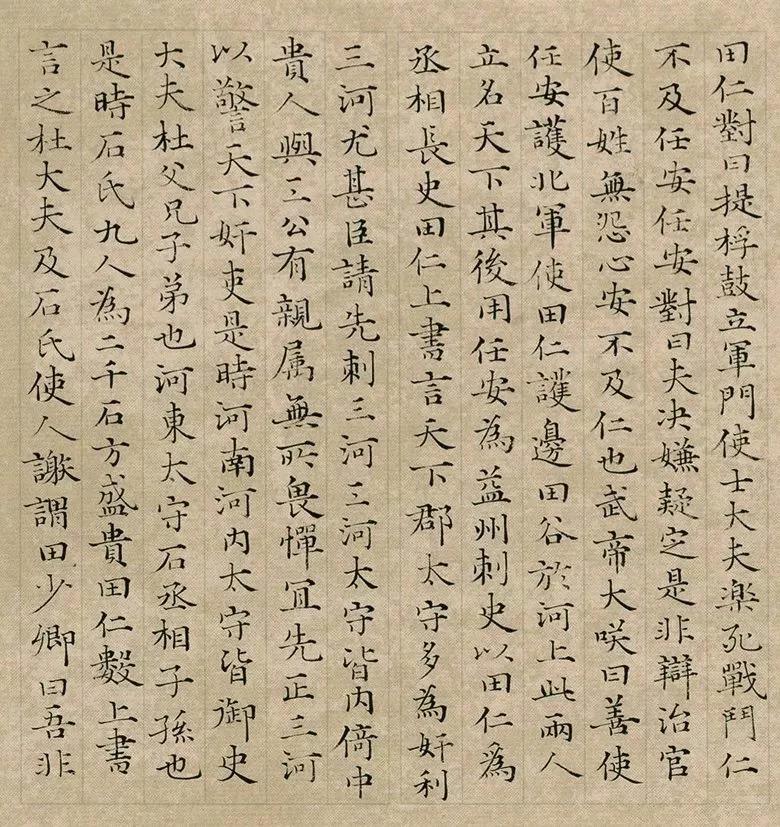 田仁對曰提桴鼓立軍門使士大夫楽死戰鬥仁
不及任安任安對曰夫决嫌疑定是非辯治官
使百姓無怨心安不及仁也武帝大咲曰善使
任安護北軍使田仁護邊田谷於河上此兩人
立名天下其後用任安為益州刺史以田仁為
丞相長史田仁上書言天下郡太守多為奸利
三河尤甚臣請先刺三河三河太守皆内倚中
貴人與三公有親属無所畏憚宜先正三河
以警天下奸吏是時河南河内太守皆御史
大夫杜父兄子弟也河東太守石丞相子孫也
是時石氏九人為二千石方盛貴田仁數上書
言之杜大夫及石氏使人謝謂田少卿曰吾非